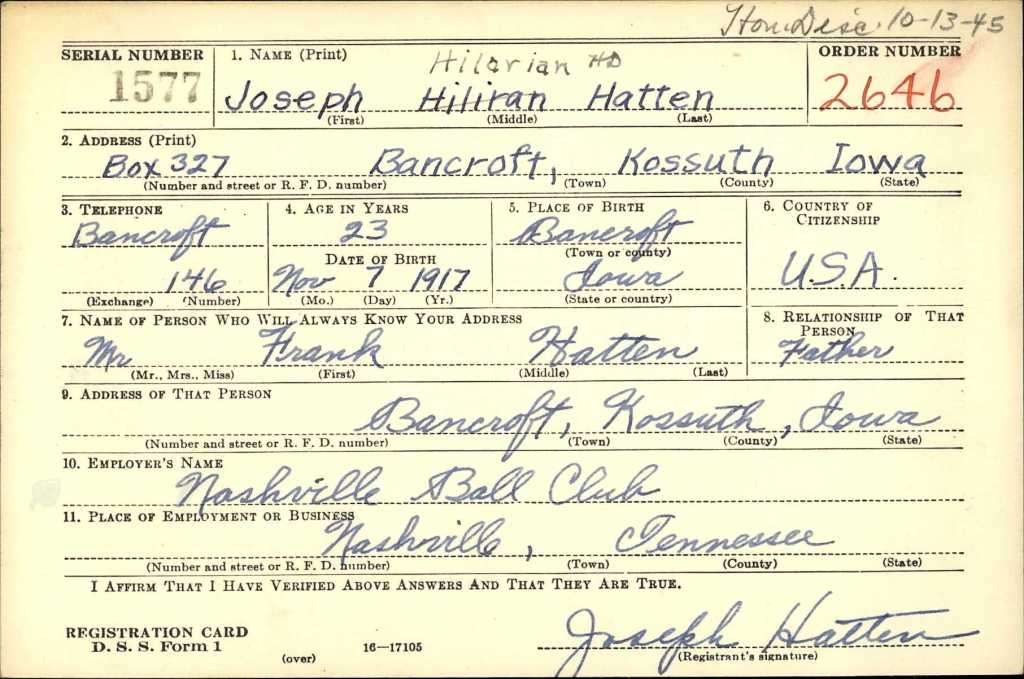 Hon. Disc. 10-13-45
SERIAL NUMBER 1. NAME (Print) ORDER NUMBER
Hilarian HD
1577 Joseph Hiliran Hatten 2646
(First) (Middle) (Last)
2. ADDRESS (Print)
Box 327 Bancroft, Kossuth Iowa
(Number and street or R. F. D. number) (Town) (County) (State)
3. TELEPHONE 4. AGE IN YEARS 5. PLACE OF BIRTH 6. COUNTRY OF CITIZENSHIP
Bancroft 23 Bancroft
DATE OF BIRTH (Town or county)
146 Nov 7 1917 Iowa U.S.A.
(Exchange) (Number) (Mo.) (Day) (Yr.) (State or country)
7. NAME OF PERSON WHO WILL ALWAYS KNOW YOUR ADDRESS 8. RELATIONSHIP OF THAT PERSON
Mr Frank Hatten Father
(Mr., Mrs., Miss) (First) (Middle) (Last)
9. ADDRESS OF THAT PERSON
Bancroft, Kossuth, Iowa
(Number and street or R. F. D. number) (Town) (County) (State)
10. EMPLOYER'S NAME
Nashville Ball Club
11. PLACE OF EMPLOYMENT OR BUSINESS
Nashville, Tennessee
(Number and street or R. F. D. number) (Town) (County) (State)
I AFFIRM THAT I HAVE VERIFIED ABOVE ANSWERS AND THAT THEY ARE TRUE.
REGISTRATION CARD
D. S. S. Form 1 (over) 16—17105 Joseph Hatten
(Registrant's signature)